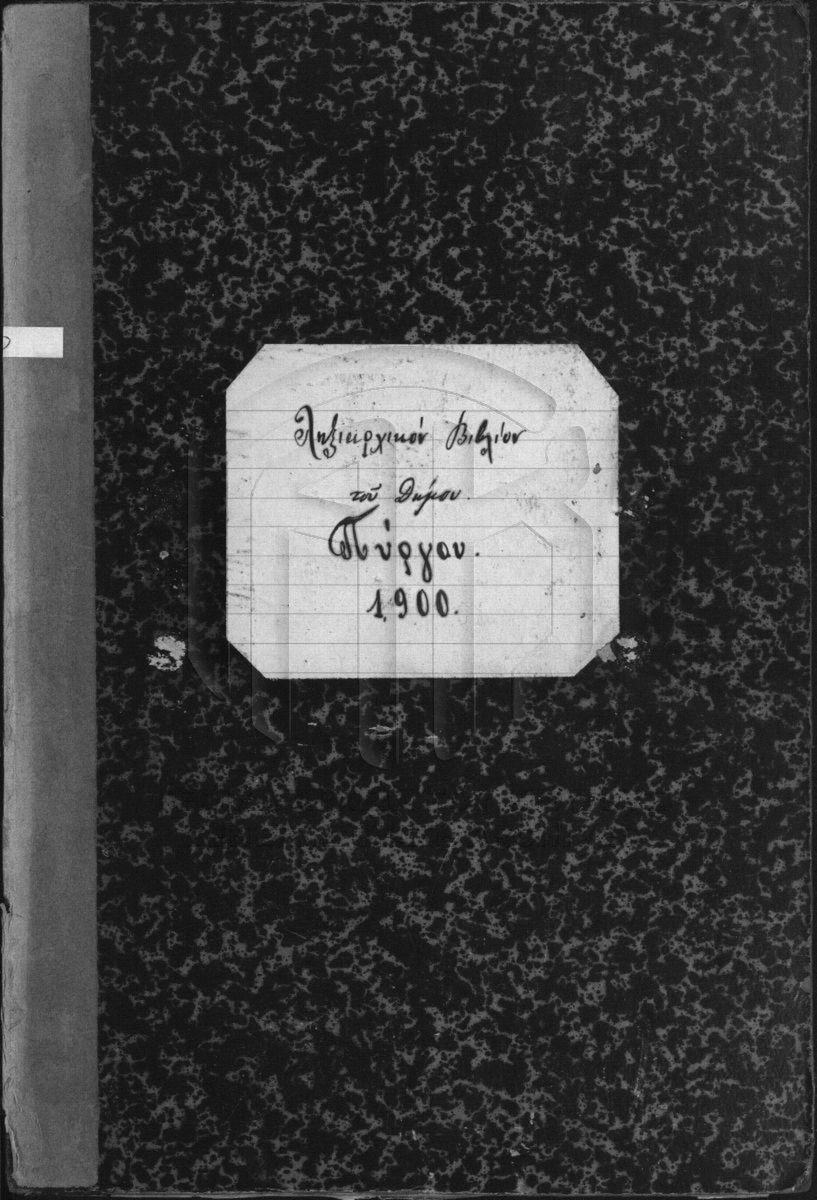 Ληξιαρχικόν Βιβλίον
τοῦ Δήμου
Πύργου.
1900.